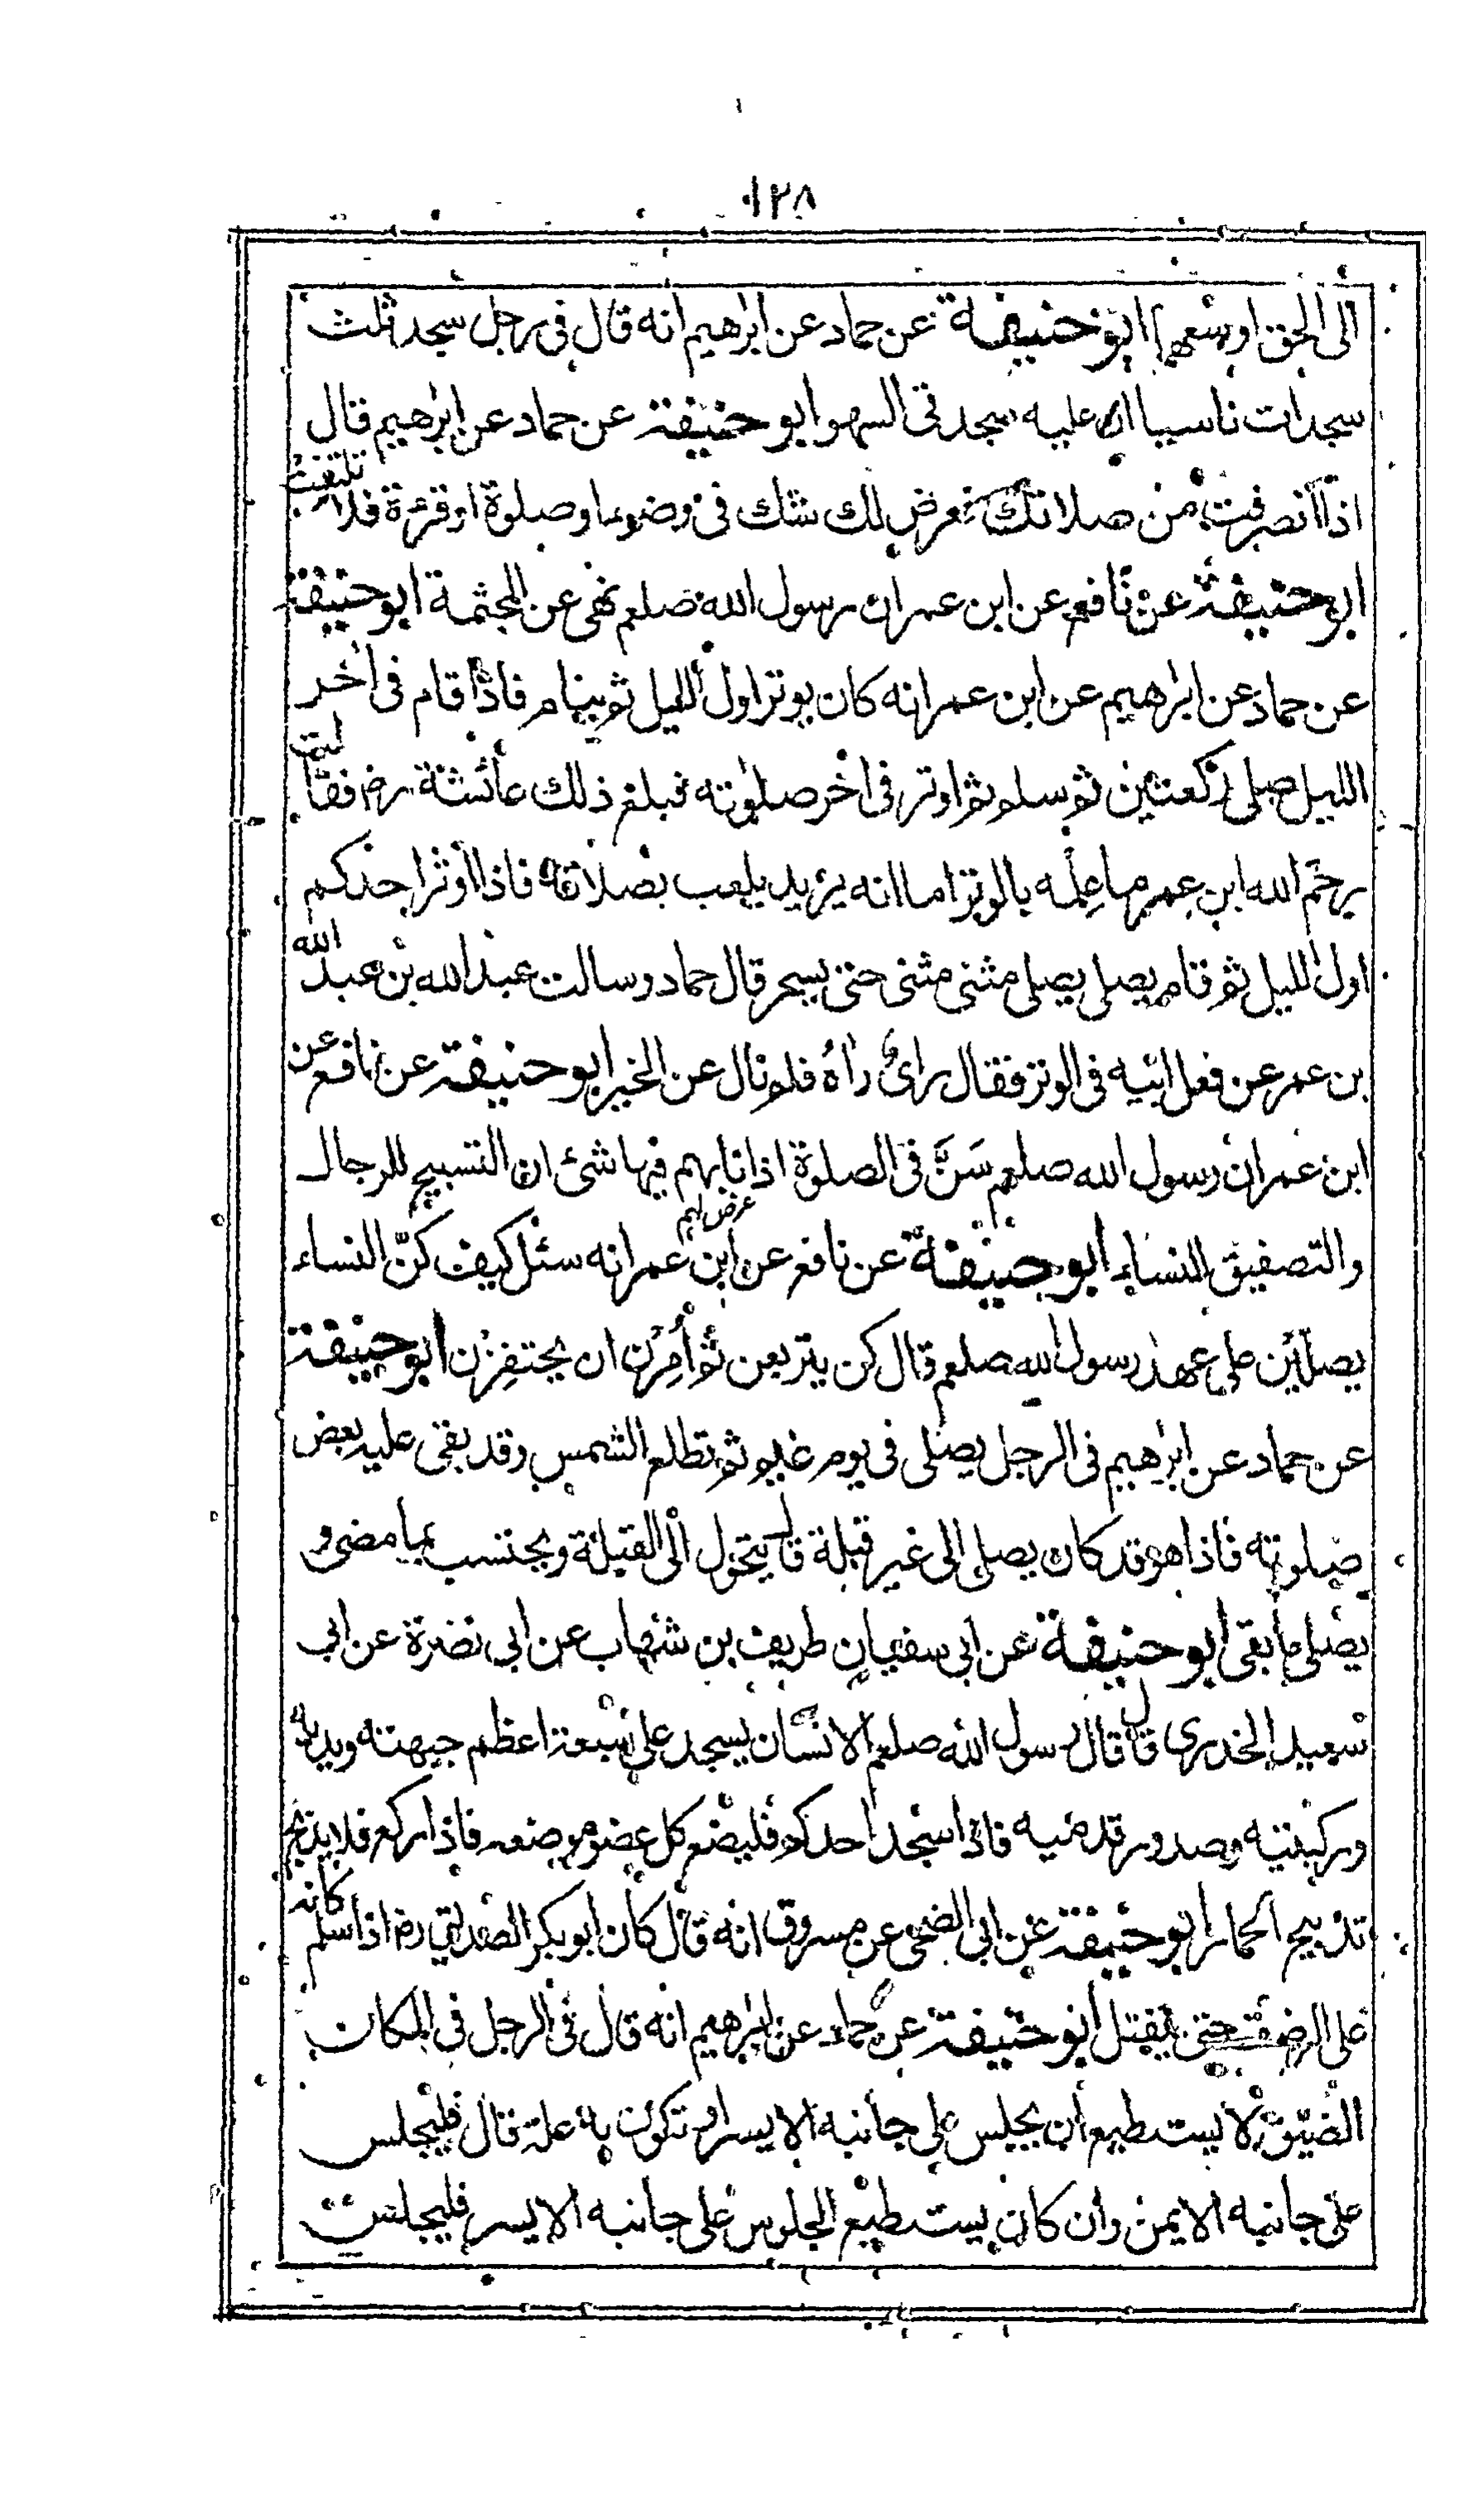 ١٢٨
الى الحق اوسهم ابو حنيفة عن حماد عن ابرهيم انه قال فى رجل سجد ثلث
سجدات ناسيا ان عليه سجدتى السهو ابو حنيفة عن حماد عن ابرهيم قال
اذا انصرفت من صلاتك فعرض لك شك فى وضوء او صلوة او قرءة فلا تلتفت
ابو حنيفة عن نافع عن ابن عمر ان رسول الله صلعم نهى عن المجثمة ابو حنيفة
عن حماد عن ابرهيم عن ابن عمر انه كان يوتر اول الليل ثم ينام فاذا قام فى اخر
الليل صلى ركعتين ثم سلم ثم اوتر فى اخر صلوته فبلغ ذلك عائشة رض فقالت
يرحم الله ابن عمر ما علمه بالوتر اما انه يريد يلعب بصلاته فاذا اوتر احدكم
اول الليل ثم قام يصلى يصلى مثنى مثنى حتى يسحر قال حماد وسالت عبد الله بن عبد الله
بن عمر عن فعل ابيه فى الوتر فقال راى راه فلم نال عن الخير ابو حنيفة عن نافع عن
ابن عمر ان رسول الله صلعم سَنَّ فى الصلوة اذا نابهم فيها شئ ان التسبيح للرجال
عرض لهم
والتصفيق للنساء ابو حنيفة عن نافع عن ابن عمر انه سئل كيف كنّ النساء
يصلين على عهد رسول الله صلعم قال كن يتربعن ثم اُمِرْن ان يحتفِزْن ابو حنيفة
عن حماد عن ابرهيم فى الرجل يصلى فى يوم غيم ثم تطلع الشمس وقد بقى عليه بعض
صلوته فاذا هو قد كان يصلى الى غير قبلة قال يتحول الى القبلة ويحتسب بما مضى و
يصلى ما بقى ابو حنيفة عن ابى سفيان طريف بن شهاب عن ابى نضرة عن ابى
سعيد الخدرى قال قال رسول الله صلعم الانسان يسجد على سبعة اعظم جبهته ويديه
وركبتيه وصدور قدميه فاذا سجد احدكم فليضع كل عضو موضعه فاذا ركع فلا يدبح
تدبيح الحمار ابو حنيفة عن ابى الضحى عن مسروق انه قال كان ابو بكر الصديق رض اذا سلم كانه
على الرضف حتى ينفتل ابو حنيفة عن حماد عن ابرهيم انه قال فى الرجل فى المكان
الضيق لا يستطيع ان يجلس على جانبه الايسر او تكون به علة قال فليجلس
على جانبه الايمن وان كان يستطيع الجلوس على جانبه الايسر فليجلس